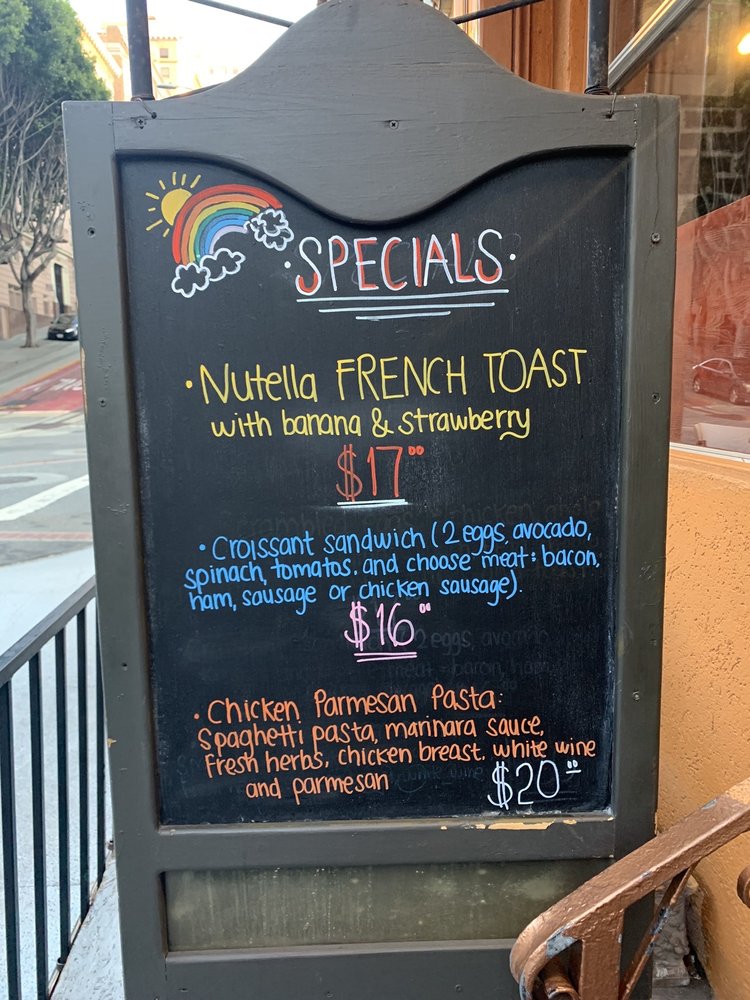 ·SPECIALS·
·Nutella FRENCH TOAST
with banana & strawberry
$17⁰⁰
·Croissant sandwich (2 eggs, avocado,
spinach, tomatos. and choose meat: bacon,
ham, sausage or chicken sausage).
$16⁰⁰
·Chicken Parmesan Pasta:
Spaghetti pasta, marinara sauce,
Fresh herbs, chicken breast. white wine
and parmesan
$20⁰⁰